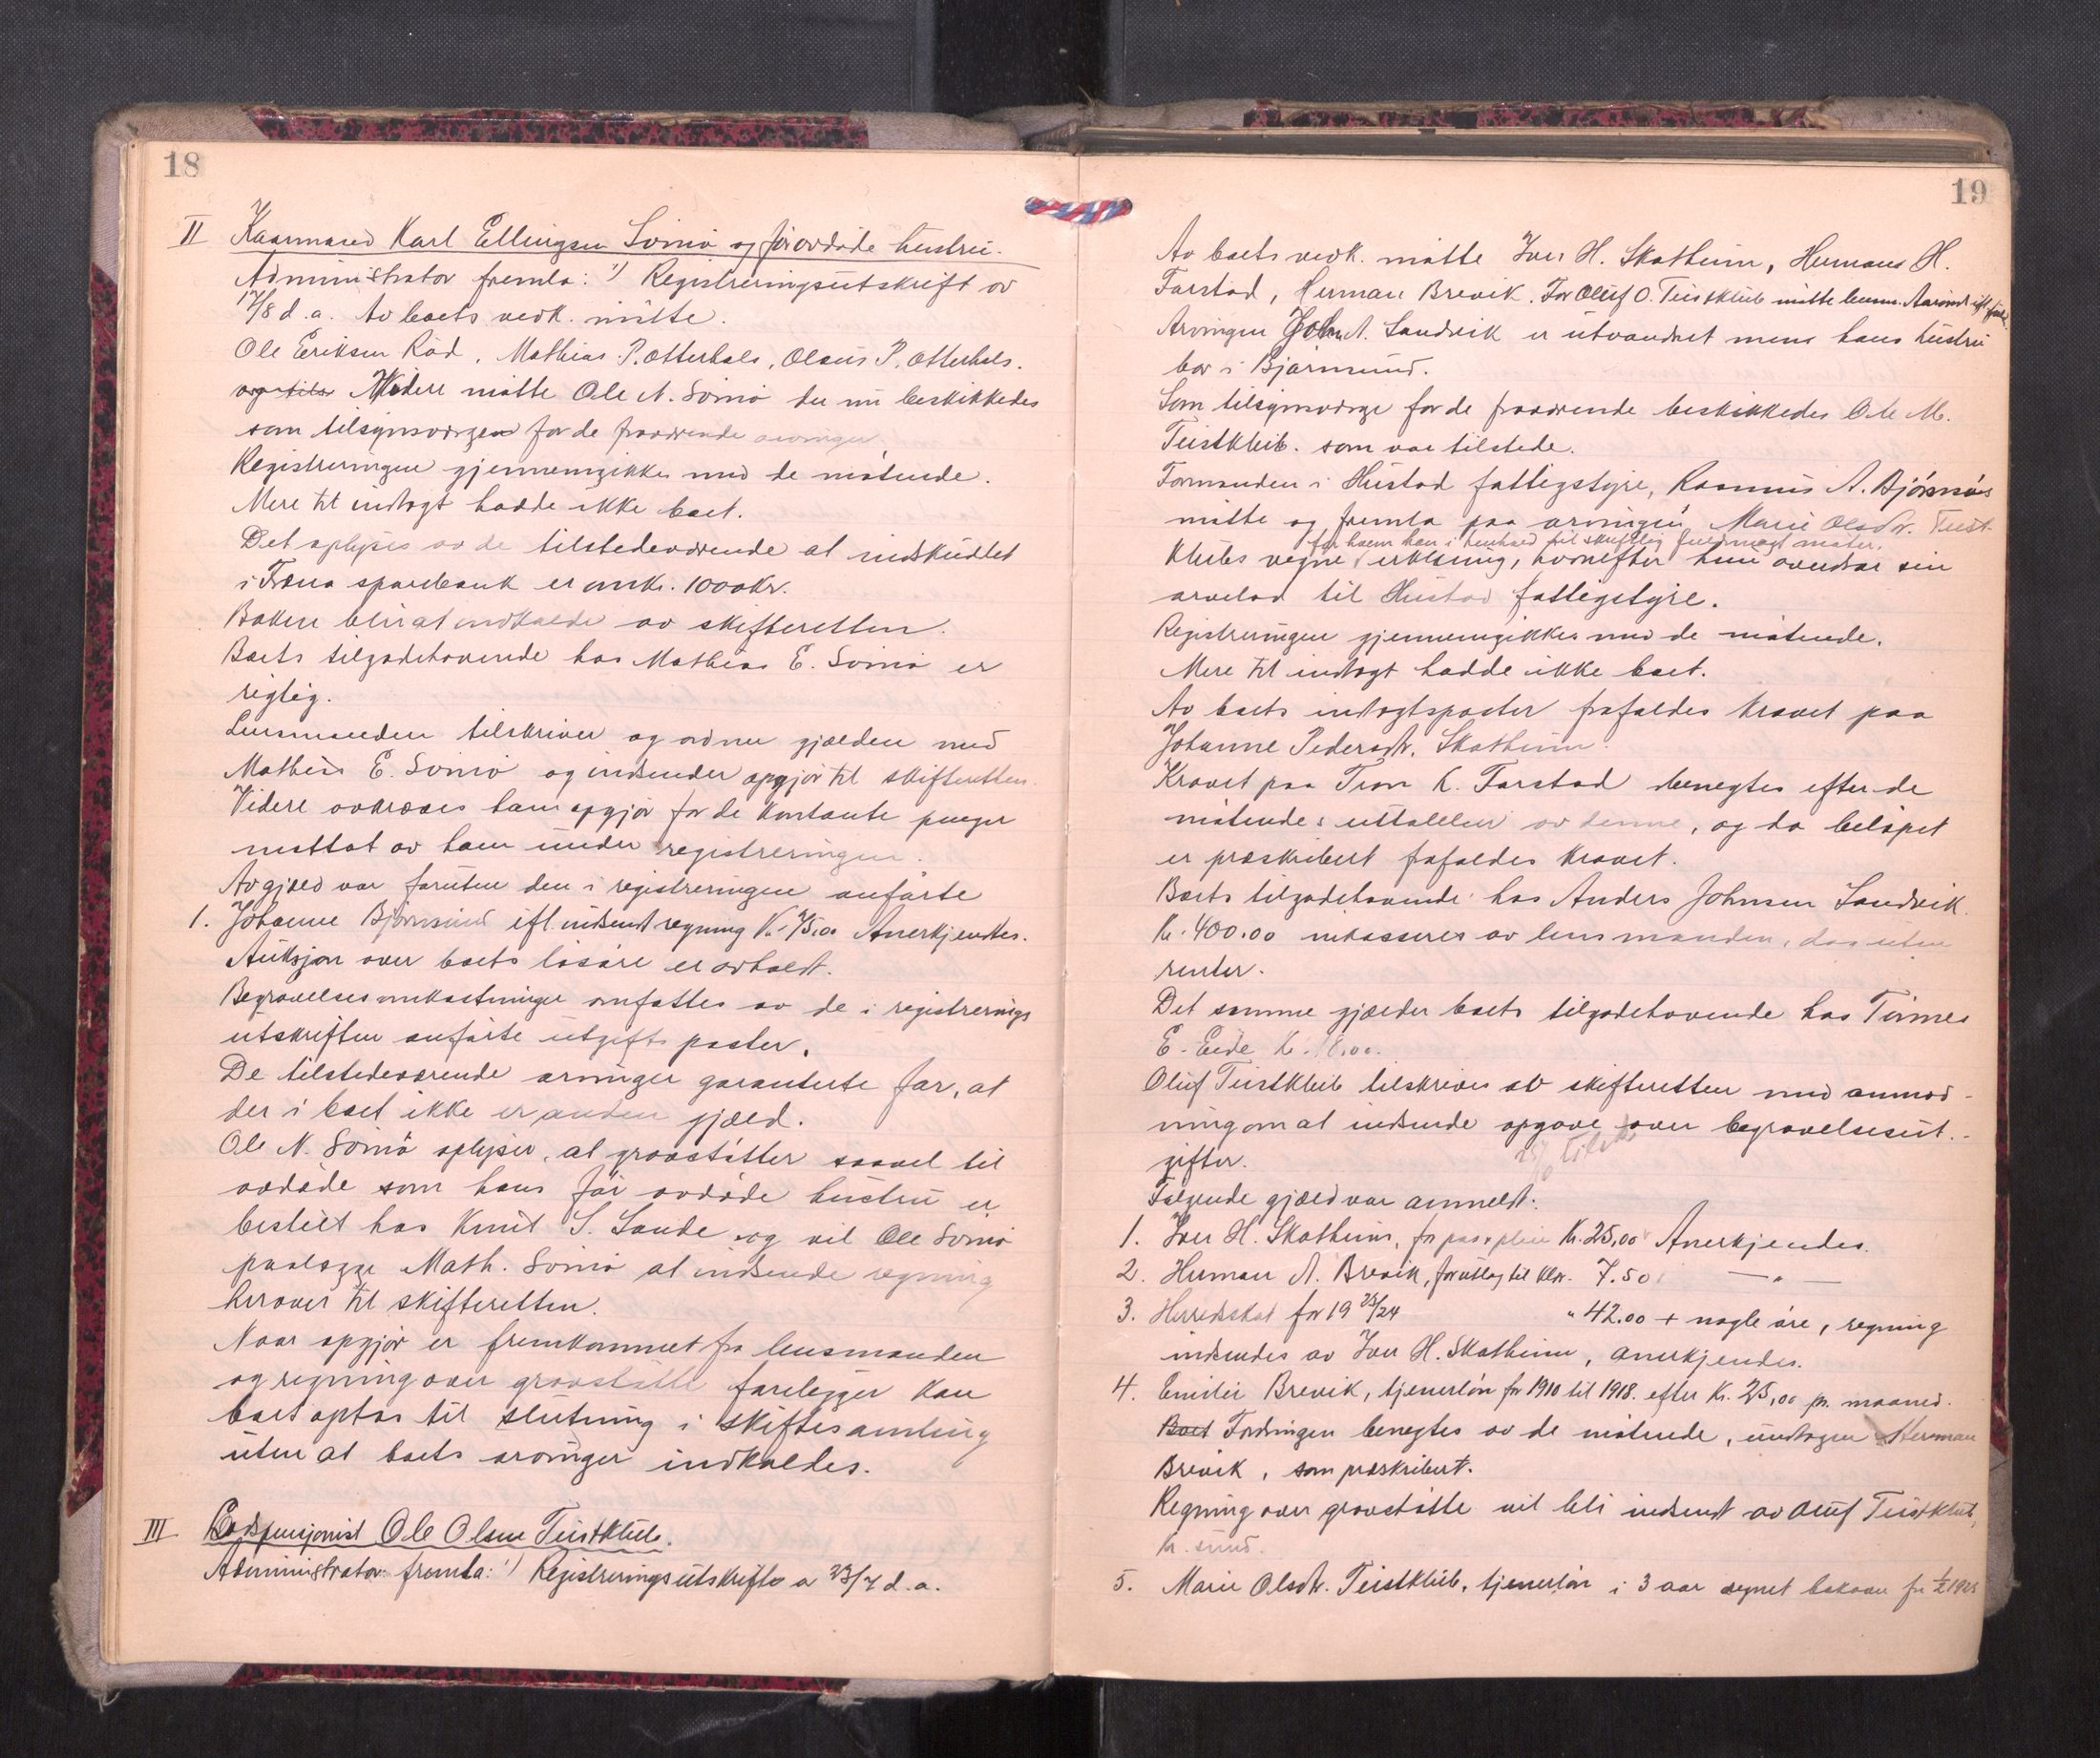 18
II Kaarmand Karl Ellingsen Sömö og föravdöde hustru.
Administrator fremla: 1) Registreringsutskrift av
17/8 d.a. Av boets vedk. mötte.
Ole Eriksen Röd, Mathias P. Otterhals, Olaus P. Otterhals.
Videre mötte Ole N. Sömö der nu beskikkedes
som tilsynsverge for de fraværende arvinger.
Registreringen gjennemgikkes med de mötende.
Mere til indtægt hadde ikke boet.
Det oplyses av de tilstedeværende at indskuddet
i Fræna sparebank er omkr. 1000 kr.
Boken blir at indkalde av skifteretten.
Boets tilgodehavende hos Mathias E. Sömö er
rigtig.
Lensmanden tilskriver og ordner gjælden med
Mathias E. Sömö og indsender opgjör til skifteretten.
Videre avkræves ham opgjör for de kontante penger
mottat av ham under registreringen.
Av gjæld var foruten den i registreringen anförte
1. Johanne Björnsund ifl. indsendt regning Kr. 75,00 Anerkjendtes.
Auksjon over boets lösöre er avholdt.
Begravelsesomkostninger omfattes av de i registrerings
utskriften anförte utgifts poster.
De tilstedeværende arvinger garanterte for, at
der i boet ikke er anden gjæld.
Ole N. Sömö oplyser, at gravstötter saavel til
avdöde som hans för avdöde hustru er
bestilt hos Knut S. Sande og vil Ole Sömö
paalægge Math. Sömö at indsende regning
herover til skifteretten.
Naar opgjör er fremkommet fra lensmanden
og regning over gravstötte forelegger kan
boet optas til slutning i skiftesamling
uten at boets arvinger indkaldes.
III Ole Olsen Teistklub.
Administrator fremla: 1) Registreringsutskrift a 23/7 d.a.
19
Av boets vedk. mötte Iver H. Skotheim, Hermans H.
Farstad, Herman Brevik. For Oluf O. Teistklub mötte
Arvingen John A. Sandvik er utvandret mens hans hustru
bor i Bjørnsund.
Som tilsynsverge for de fraværende beskikkedes Ole M.
Teistklub. som var tilstede.
Formanden i Hustad fattigstyre, Rasmus A. Björnsnös
mötte og fremla paa arvingen Marie Olsdtr. Teist-
for hvem han i henhold til skriftlig fuldmagt möter,
klubs vegne erklæring, hvorefter hun overdrar sin
arvelod til Hustad fattigstyre.
Registreringen gjennemgikkes med de mötende.
Mere til indtægt hadde ikke boet.
Av boets indtægtsposter frafaldes kravet paa
Johanne Pedersdtr. Skotheim.
Kravet paa Tron K. Farstad benegtes efter de
mötendes uttalelser av denne, og da belöpet
er præskribert frafaldes kravet.
Boets tilgodehavende hos Anders Johnsen Sandvik
Kr. 400.00 inkasseres av lensmanden, dog uten
renter.
Det samme gjælder boets tilgodehavende hos Tønnes
E. Eide Kr. 18.00.
Oluf Teistklub tilskrives av skifteretten med anmod-
ning om at indsende opgave over begravelsesut-
gifter.
Fölgende gjæld var anmeldt:
1. Iver H. Skotheim, for Kr. 25,00 Anerkjendes.
2. Herman A. Brevik, for utlæg til klær. 7.50 —"—
3. Herredskat for 19 23/24 " 42.00 + nogle öre, regning
indsendes av Iver H. Skotheim, anerkjendes.
4. Emilie Brevik, tjenerlön for 1910 til 1918. efter Kr. 25,00 pr. maaned.
Boet Fordringen benegtes av de mötende, undtagen Herman
Brevik, som præskribert.
Regning over gravstötte vil bli indsendt av Oluf Teistklub,
Kr. sund.
5. Marie Olsdtr. Teistklub, tjenerlön i 3 aar regnet bakover fra